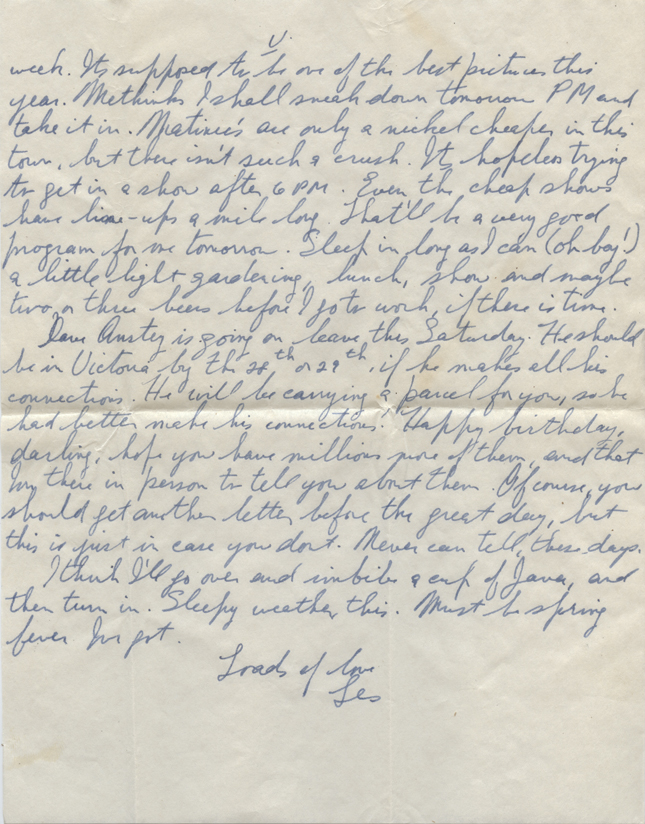 V
week. Its supposed to be one of the best pictures this
year. Methinks I shall sneak down tomorrow PM and
take it in. Matinee's are only a nickel cheaper in this
town, but there isn't such a crush. Its hopeless trying
to get in a show after 6 PM. Even the cheap shows
have line-ups a mile long. That'll be a very good
program for me tomorrow. Sleep in long as I can (oh boy!)
a little light gardening, lunch, show and maybe
two or three beers before I go to work, if there is time.
Dave Anstey is going on leave this Saturday. He should
be in Victoria by the 28th or 29th, if he makes all his
connections. He will be carrying a parcel for you, so he
had better make his connections. Happy birthday,
darling, hope you have millions more of them, and that
Im there in person to tell you about them. Of course, you
should get another letter before the great day, but
this is just in case you dont. Never can tell, these days.
I think I'll go over and imbibe a cup of Java, and
then turn in. Sleepy weather this. Must be spring
fever Ive got.
Loads of love
Les